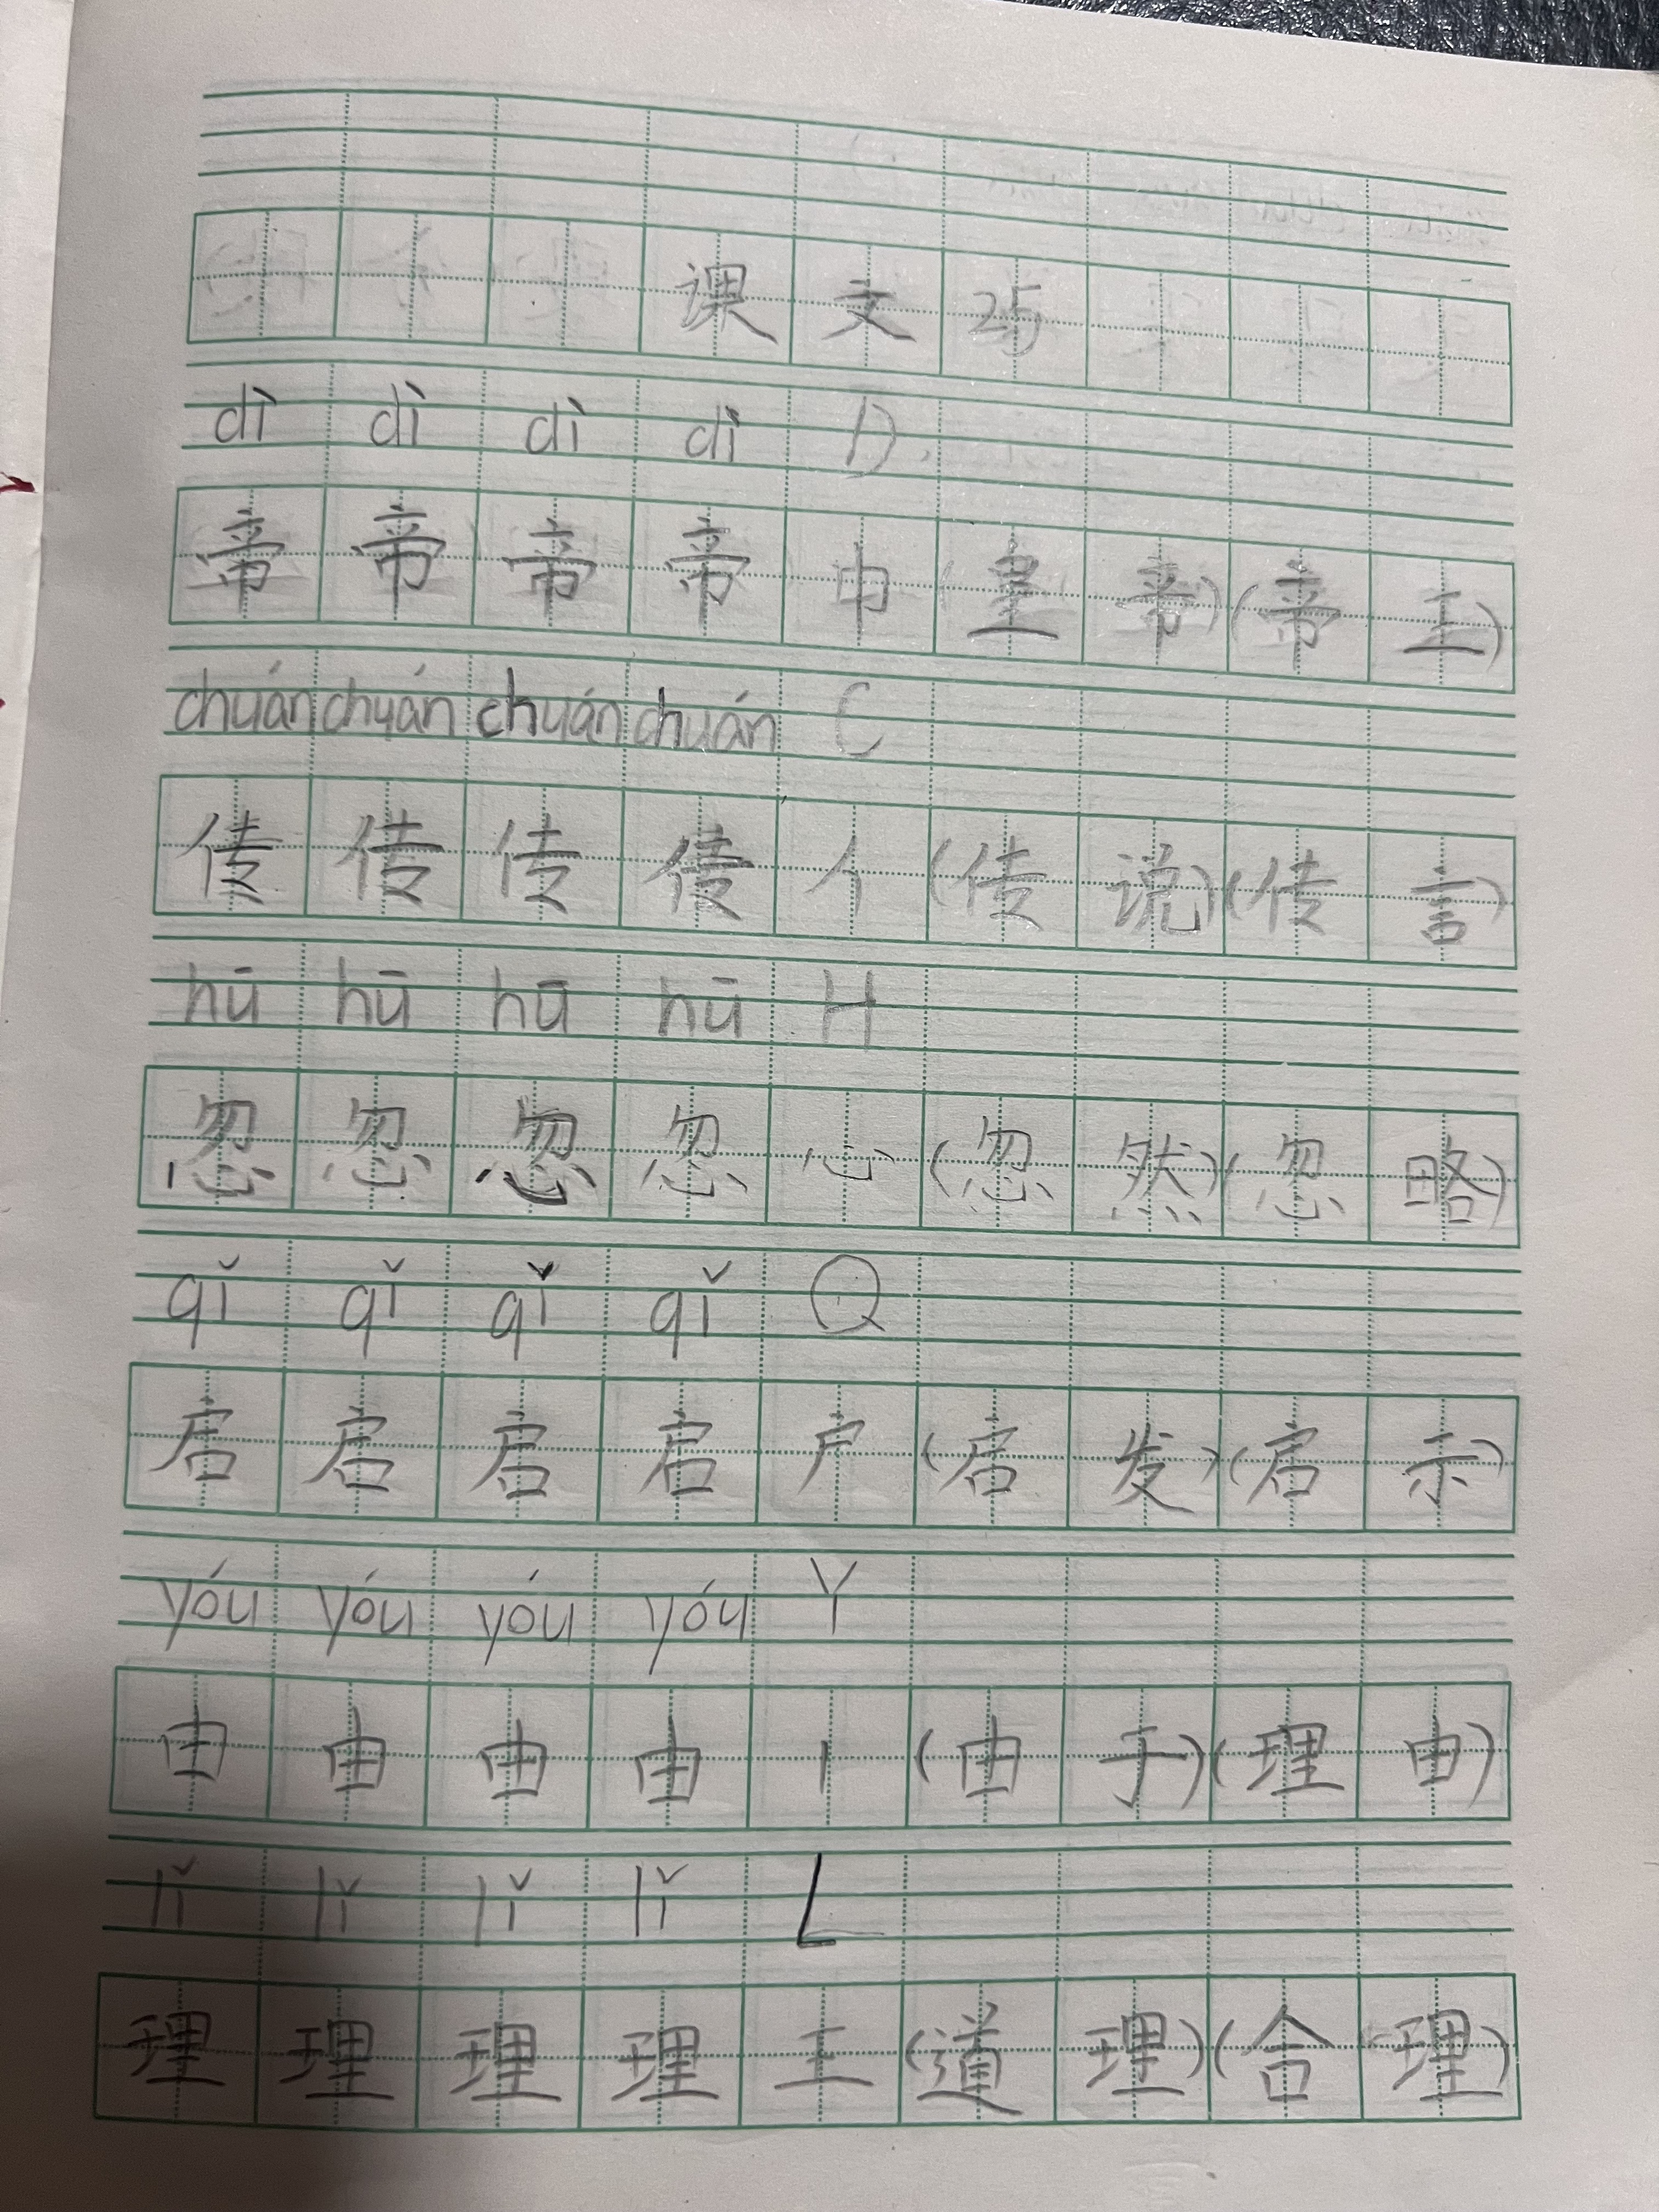 课文25
dì dì dì dì D
帝帝帝帝巾(皇帝)(帝王)
chuán chuán chuán chuán C
传传传传亻(传说)(传言)
hū hū hū hū H
忽忽忽忽心(忽然)(忽略)
qǐ qǐ qǐ qǐ Q
启启启启户(启发)(启示)
yóu yóu yóu yóu Y
由由由由丨(由于)(理由)
lǐ lǐ lǐ lǐ L
理理理理王(道理)(合理)